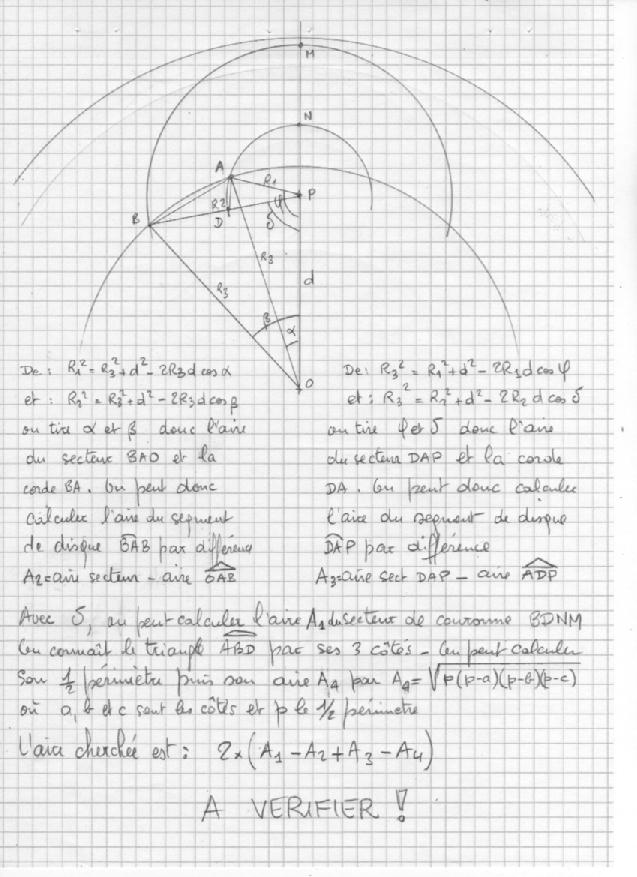 M
N
A
R1
P
R2
φ
B
D
δ
R3
R3
d
β
α
O
De : R1² = R3² + d² - 2R3 d cos α
et : R2² = R3² + d² - 2R3 d cos β
on tire α et β donc l'aire
du secteur BAO et la
corde BA. On peut donc
calculer l'aire du segment
de disque OAB par différence
A2 = aire secteur - aire OAB
De : R3² = R1² + d² - 2R1 d cos φ
et : R3² = R2² + d² - 2R2 d cos δ
on tire φ et δ donc l'aire
du secteur DAP et la corde
DA. On peut donc calculer
l'aire du segment de disque
DAP par différence
A3 = aire sect DAP - aire ADP
Avec δ, on peut calculer l'aire A1 du secteur de couronne BDNM
On connaît le triangle ABD par ses 3 côtés - On peut calculer
Son ½ périmètre puis son aire A4 par A4 = √p(p-a)(p-b)(p-c)
où a, b et c sont les côtés et p le ½ périmètre
L'aire cherchée est : 2×(A1 - A2 + A3 - A4)
A VERIFIER !